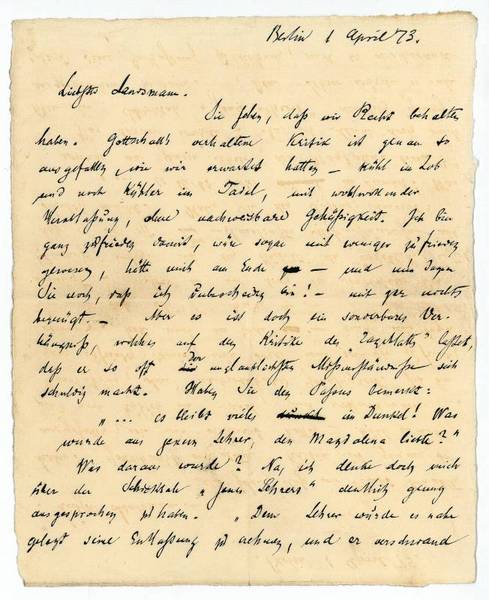 Berlin 1 April 73.
Liebster Landsmann.
Sie sehen, daß wir Recht behalten
haben. Gottschall's verhaltene Kritik ist genau so
ausgefallen, wie wir erwartet hatten – kühl im Lob
und noch kühler im Tadel, mit wohlwollender
, ohne nachweisbare Gehässigkeit. Ich bin
ganz zufrieden damit, wäre sogar mit weniger zufrieden
gewesen, hätte mich am Ende – und nun sagen
Sie noch, daß ich unbescheiden bin! – mit gar nichts
begnügt. – Aber es ist doch ein sonderbares Ver-
hängniß, welches auf den Kritiker des "Tageblatts" lastet,
daß er so oft der unglaublichsten Mißverständnisse sich
schuldig macht. Haben Sie den Passus bemerkt:
"... es bleibt vieles im Dunkel! Was
wurde aus jenem Lehrer, den Magdalena liebte?"
Was daraus wurde? Na, ich denke doch mich
über das Schicksal "jenes Lehrers" deutlich genug
ausgesprochen zu haben. "Dem Lehrer wurde es nahe
gelegt seine Entlassung zu nehmen, und er verschwand